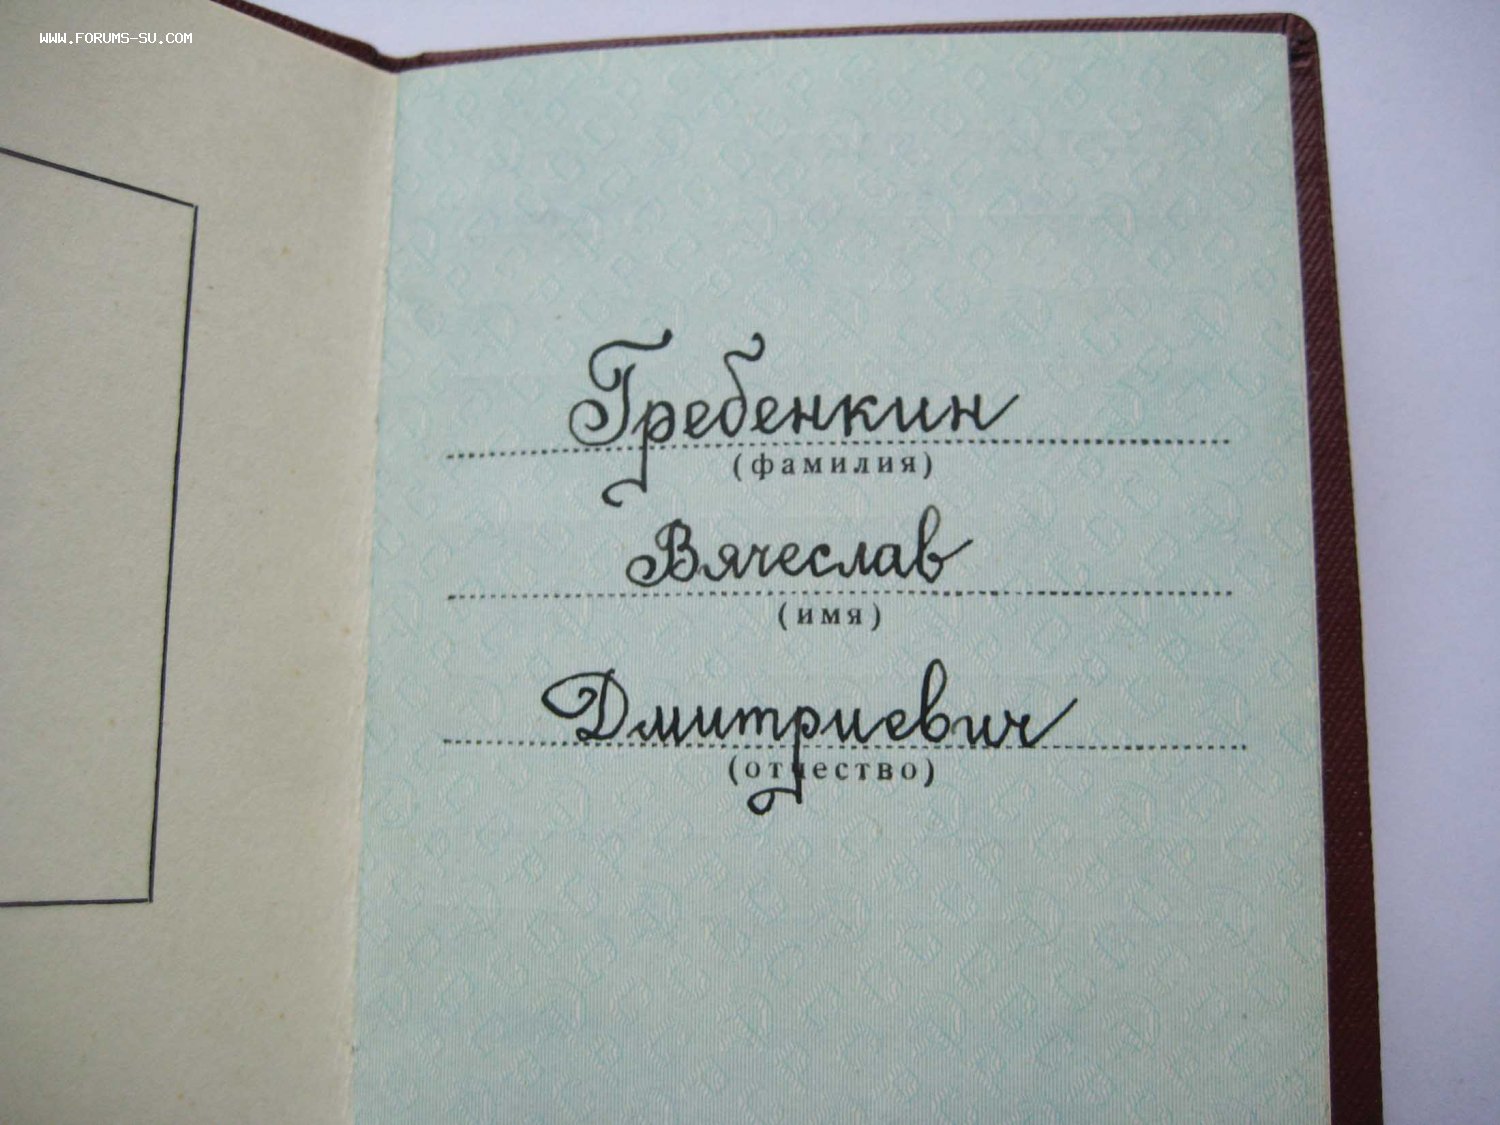 WWW.FORUMS-SU.COM
Гребенкин
(фамилия)
Вячеслав
(имя)
Дмитриевич
(отчество)